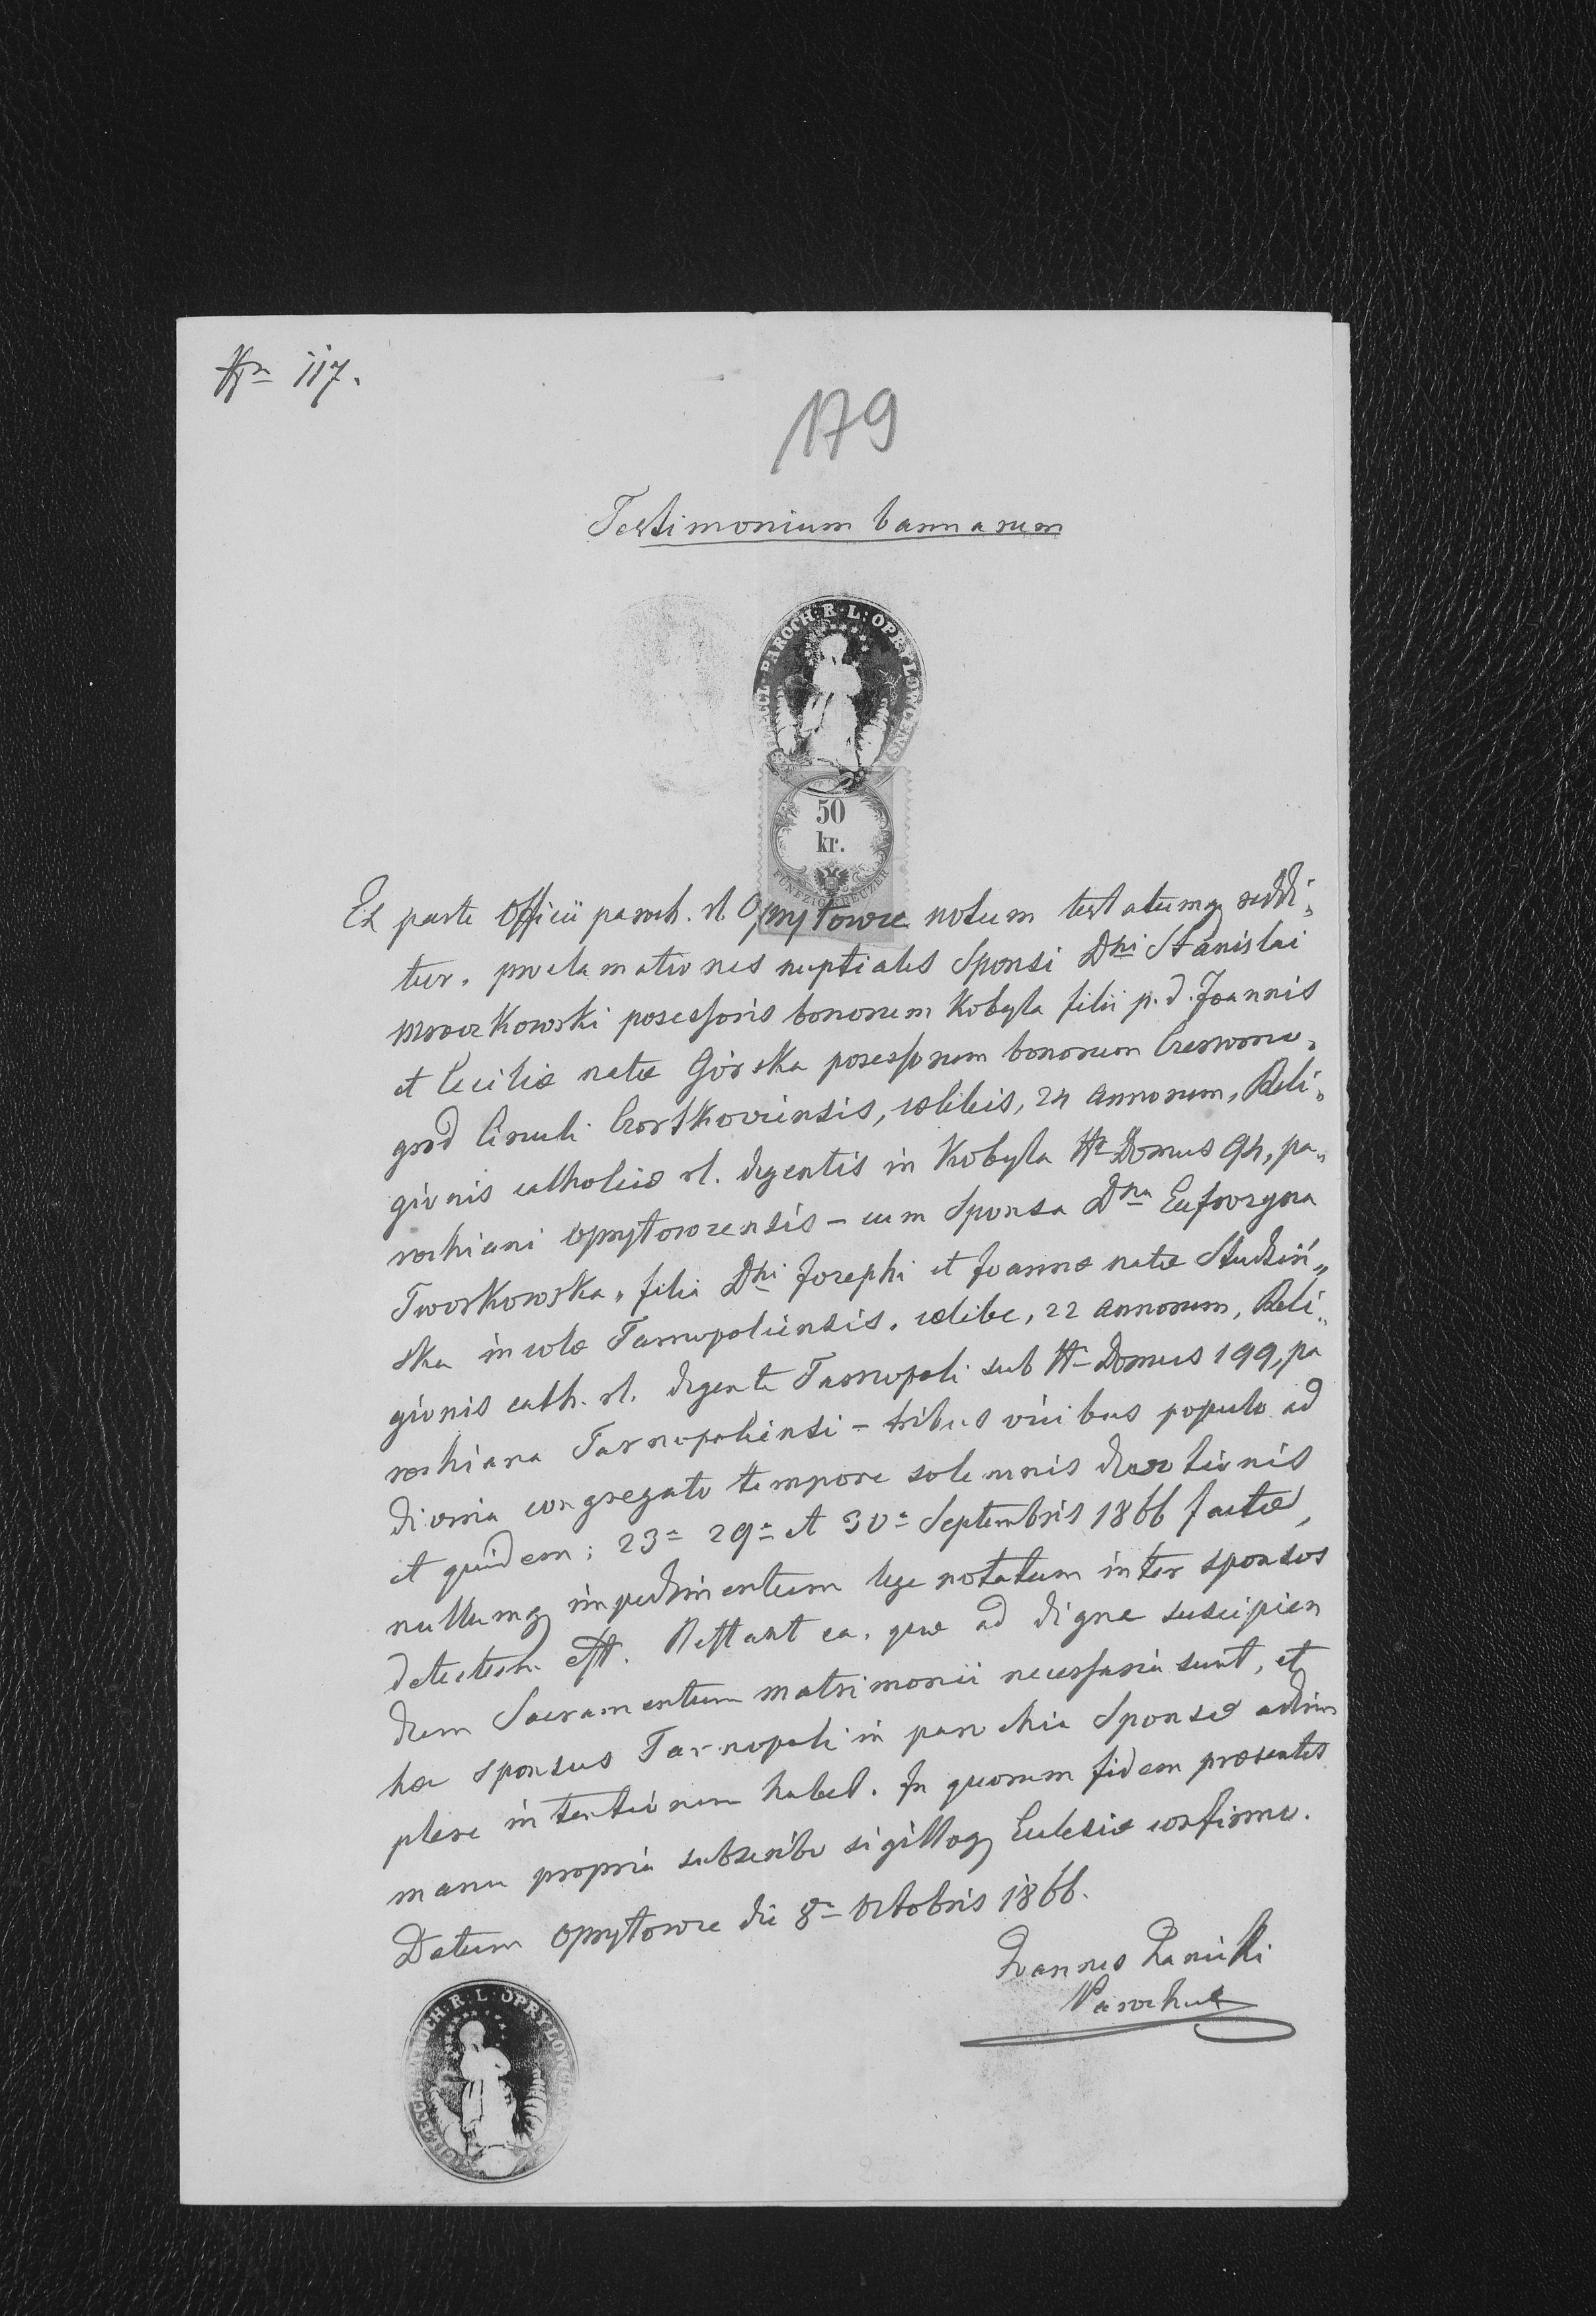 Nr 117.
179
Testimonium bannarum
PAROCH: R. L: OPRYLOWCENS
50
kr.
FÜNFZIG KREUZER
Ex parte Officii paroch. rl. Opryłowce notum testatumq reddi„
tur, proclamationes nuptiales Sponsi Dni Stanislai
Mroczkowski possessoris bonorum Kobyla filii p. d. Joannis
et Ceciliæ natæ Górska possessorum bonorum Czerwono„
grod Circuli Czortkoviensis, cœlibis, 24 annorum, Reli„
gionis catholicæ rl. degentis in Kobyla Nr Domus 94, pa„
rochiani Opryłowcensis – cum Sponsa Dna Eufrozyna
Tworkowska, filia Dni Josephi et Joannæ natæ Studziń„
ska incolæ Tarnopoliensis, cœlibe, 22 annorum, Reli„
gionis cath. rl. degente Tarnopoli sub Nr Domus 199, pa
rochiana Tarnopoliensi – tribus vicibus populo ad
divina congregato tempore solemnis devotionis
et quidem: 23a 29a et 30a Septembris 1866 factæ,
nullumq impedimentum lege notatum inter sponsos
detectum est. Restant ea, quæ ad digne suscipien
dum Sacramentum matrimonii necessaria sunt, et
hæc sponsus Tarnopoli in parochia Sponsæ adim
plere intentionem habet. In quorum fidem præsentes
manu propria subscribo sigilloq Ecclesiæ confirmo.
Datum Opryłowce die 8a Octobris 1866.
Joannes
Parochus
PAROCH. R. L. OPRYLOW